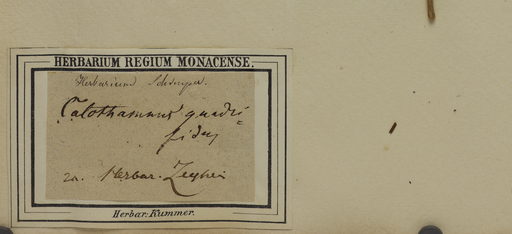 HERBARIUM REGIUM MONACENSE.
Herbarium Schimper.
Calothamnus quadri-
fidus
Herbar. Zeyheri
Herbar. Kummer.